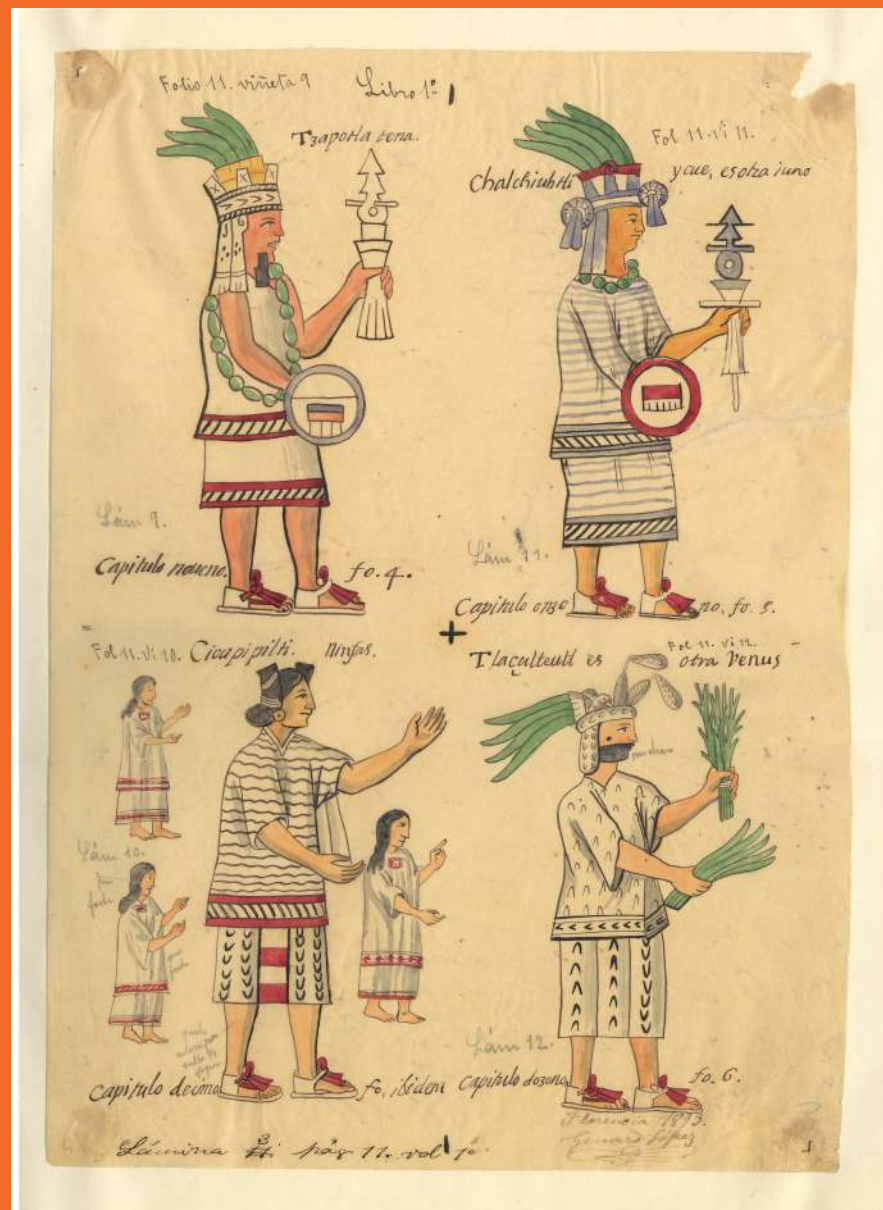 Folio 11. viñeta 9
Libro 1º
Tzapotla tena.
Fol 11. vi 11.
Chalchiuhtli ycue, es otra iuno
Lám 9.
Capitulo noueno. fo. 4.
Lám 11.
Capitulo onzeno, fo. 5.
Fol. 11. vi 10. Cicuapipilti. Ninfas.
Fol 11. vi 12.
Tlaçulteutl es otra Venus
Lám 10.
Capitulo decimo fo, ibidem
Lám 12.
Capitulo dozeno fo. 6.
Florencia 1893.
Genaro López
Lámina 3 pág 11. vol 1º